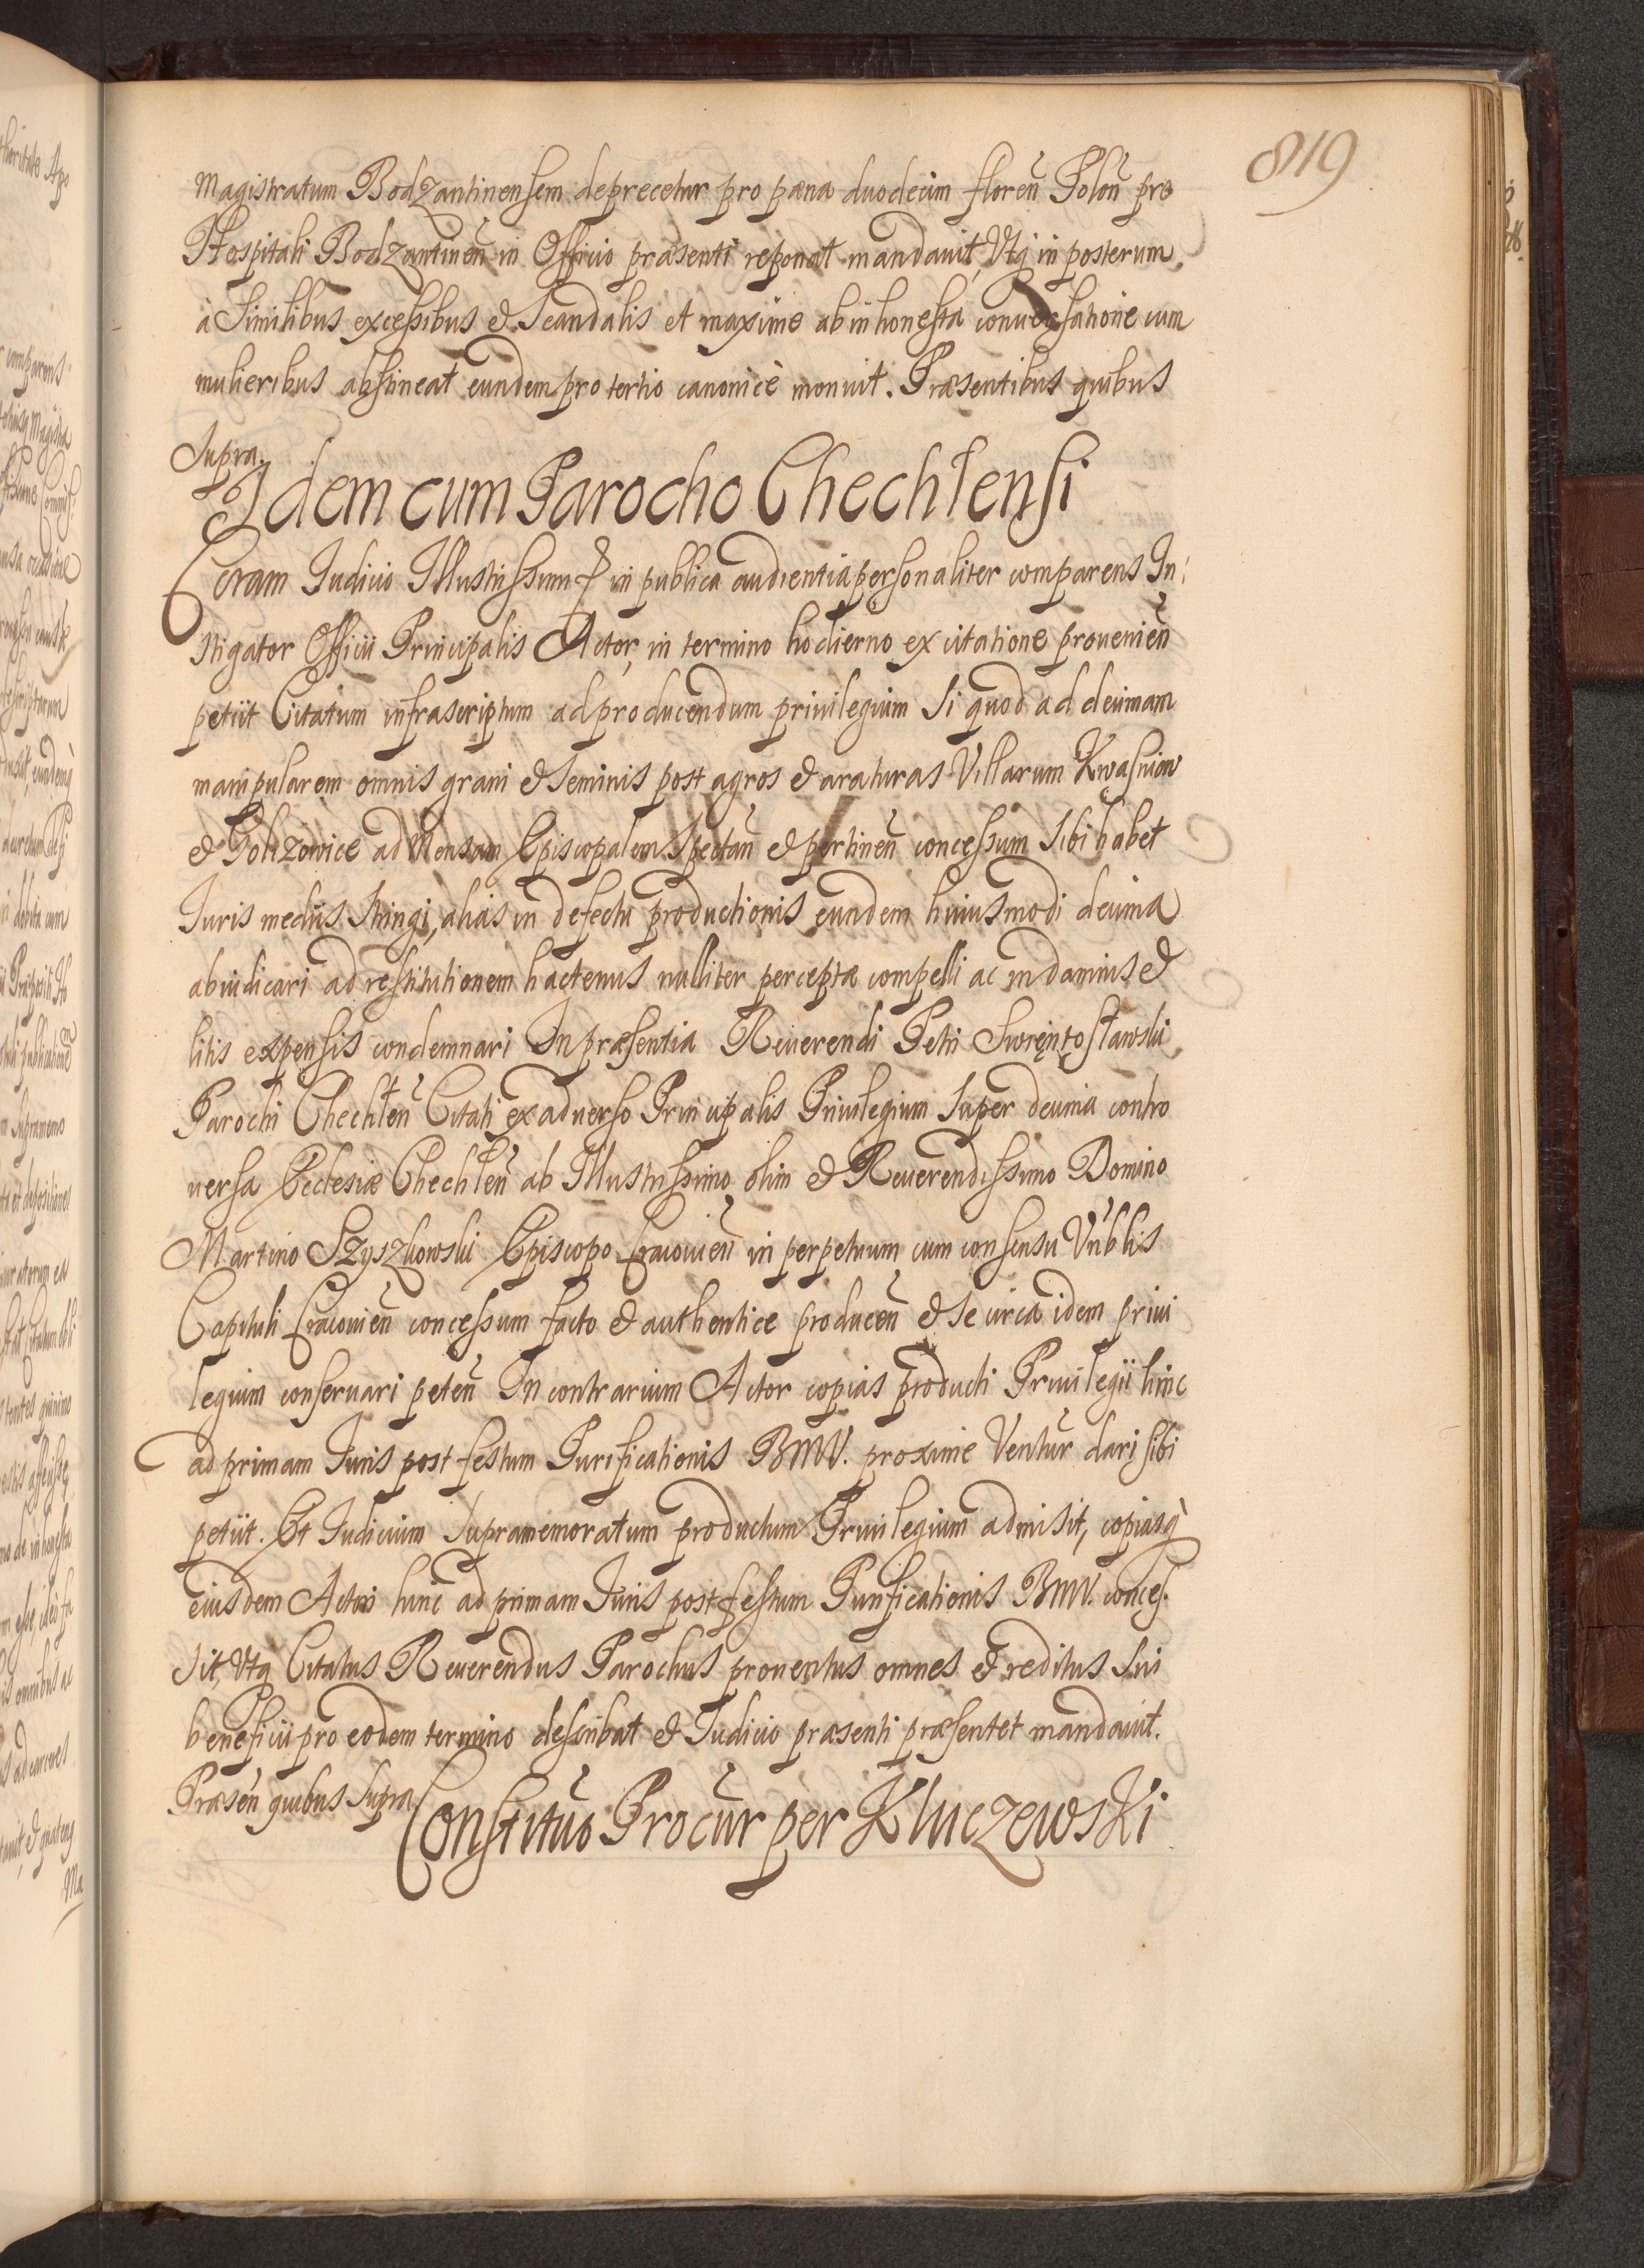 819
Magistratum Bodzantinensem deprecetur pro pæna duodecim floreñ Poloñ pro
Hospitali Bodzantineñ in Officio præsenti reponat mandauit, Vtq in posterum
à Similibus excessibus & Scandalis et maxime ab inhonesta conuersatione cum
mulieribus abstineat eundem pro tertio canonicè monuit. Præsentibus quibus
Supra.
Idem cum Parocho Chechlensi
Coram Iudicio Illustrissimi & in publica audientia personaliter comparens In:
stigator Officii Principalis Actor, in termino hodierno ex citatione prouenieñ
petiit Citatum infrascriptum ad producendum priuilegium Si quod ad decimam
manipularem omnis grani & Seminis post agros & araturas Villarum Kwasniow
& Golczowice ad Mensam Episcopalem Spectañ & pertineñ concessum Sibi habet
Iuris mediis stringi, alias in defectu productionis eundem huiusmodi decima
abiudicari ad restitutionem hactenus nulliter perceptæ compelli ac in damnis &
litis expensis condemnari In præsentia Reuerendi Petri Swiętosławski
Parochi Chechleñ Citati ex aduerso Principalis Priuilegium Super decima contro
uersa Ecclesiæ Chechleñ ab Illustrissimo olim & Reuerendissimo Domino
Martino Szyszkowski Episcopo Cracouieñ in perpetuum cum consensu Vñblis
Capituli Cracouieñ concessum facto & authentice produceñ & Se circa idem priui
legium conseruari peteñ In contrarium Actor copias producti Priuilegii hinc
ad primam Iuris post festum Purificationis BMV. proxime Ventur̃ dari sibi
petiit. Et Iudicium Supramemoratum productum Priuilegium admisit, copiasq̀
eiusdem Actori hinc ad primam Iuris post festum Purificationis BMV. conces.
Sit, Vtq Citatus Reuerendus Parochus prouentus omnes & reditus Sui
beneficii pro eodem termino describat & Iudicio præsenti præsentet mandauit.
Præseñ quibus Supra
Constitũo Procũr per Kluczewski